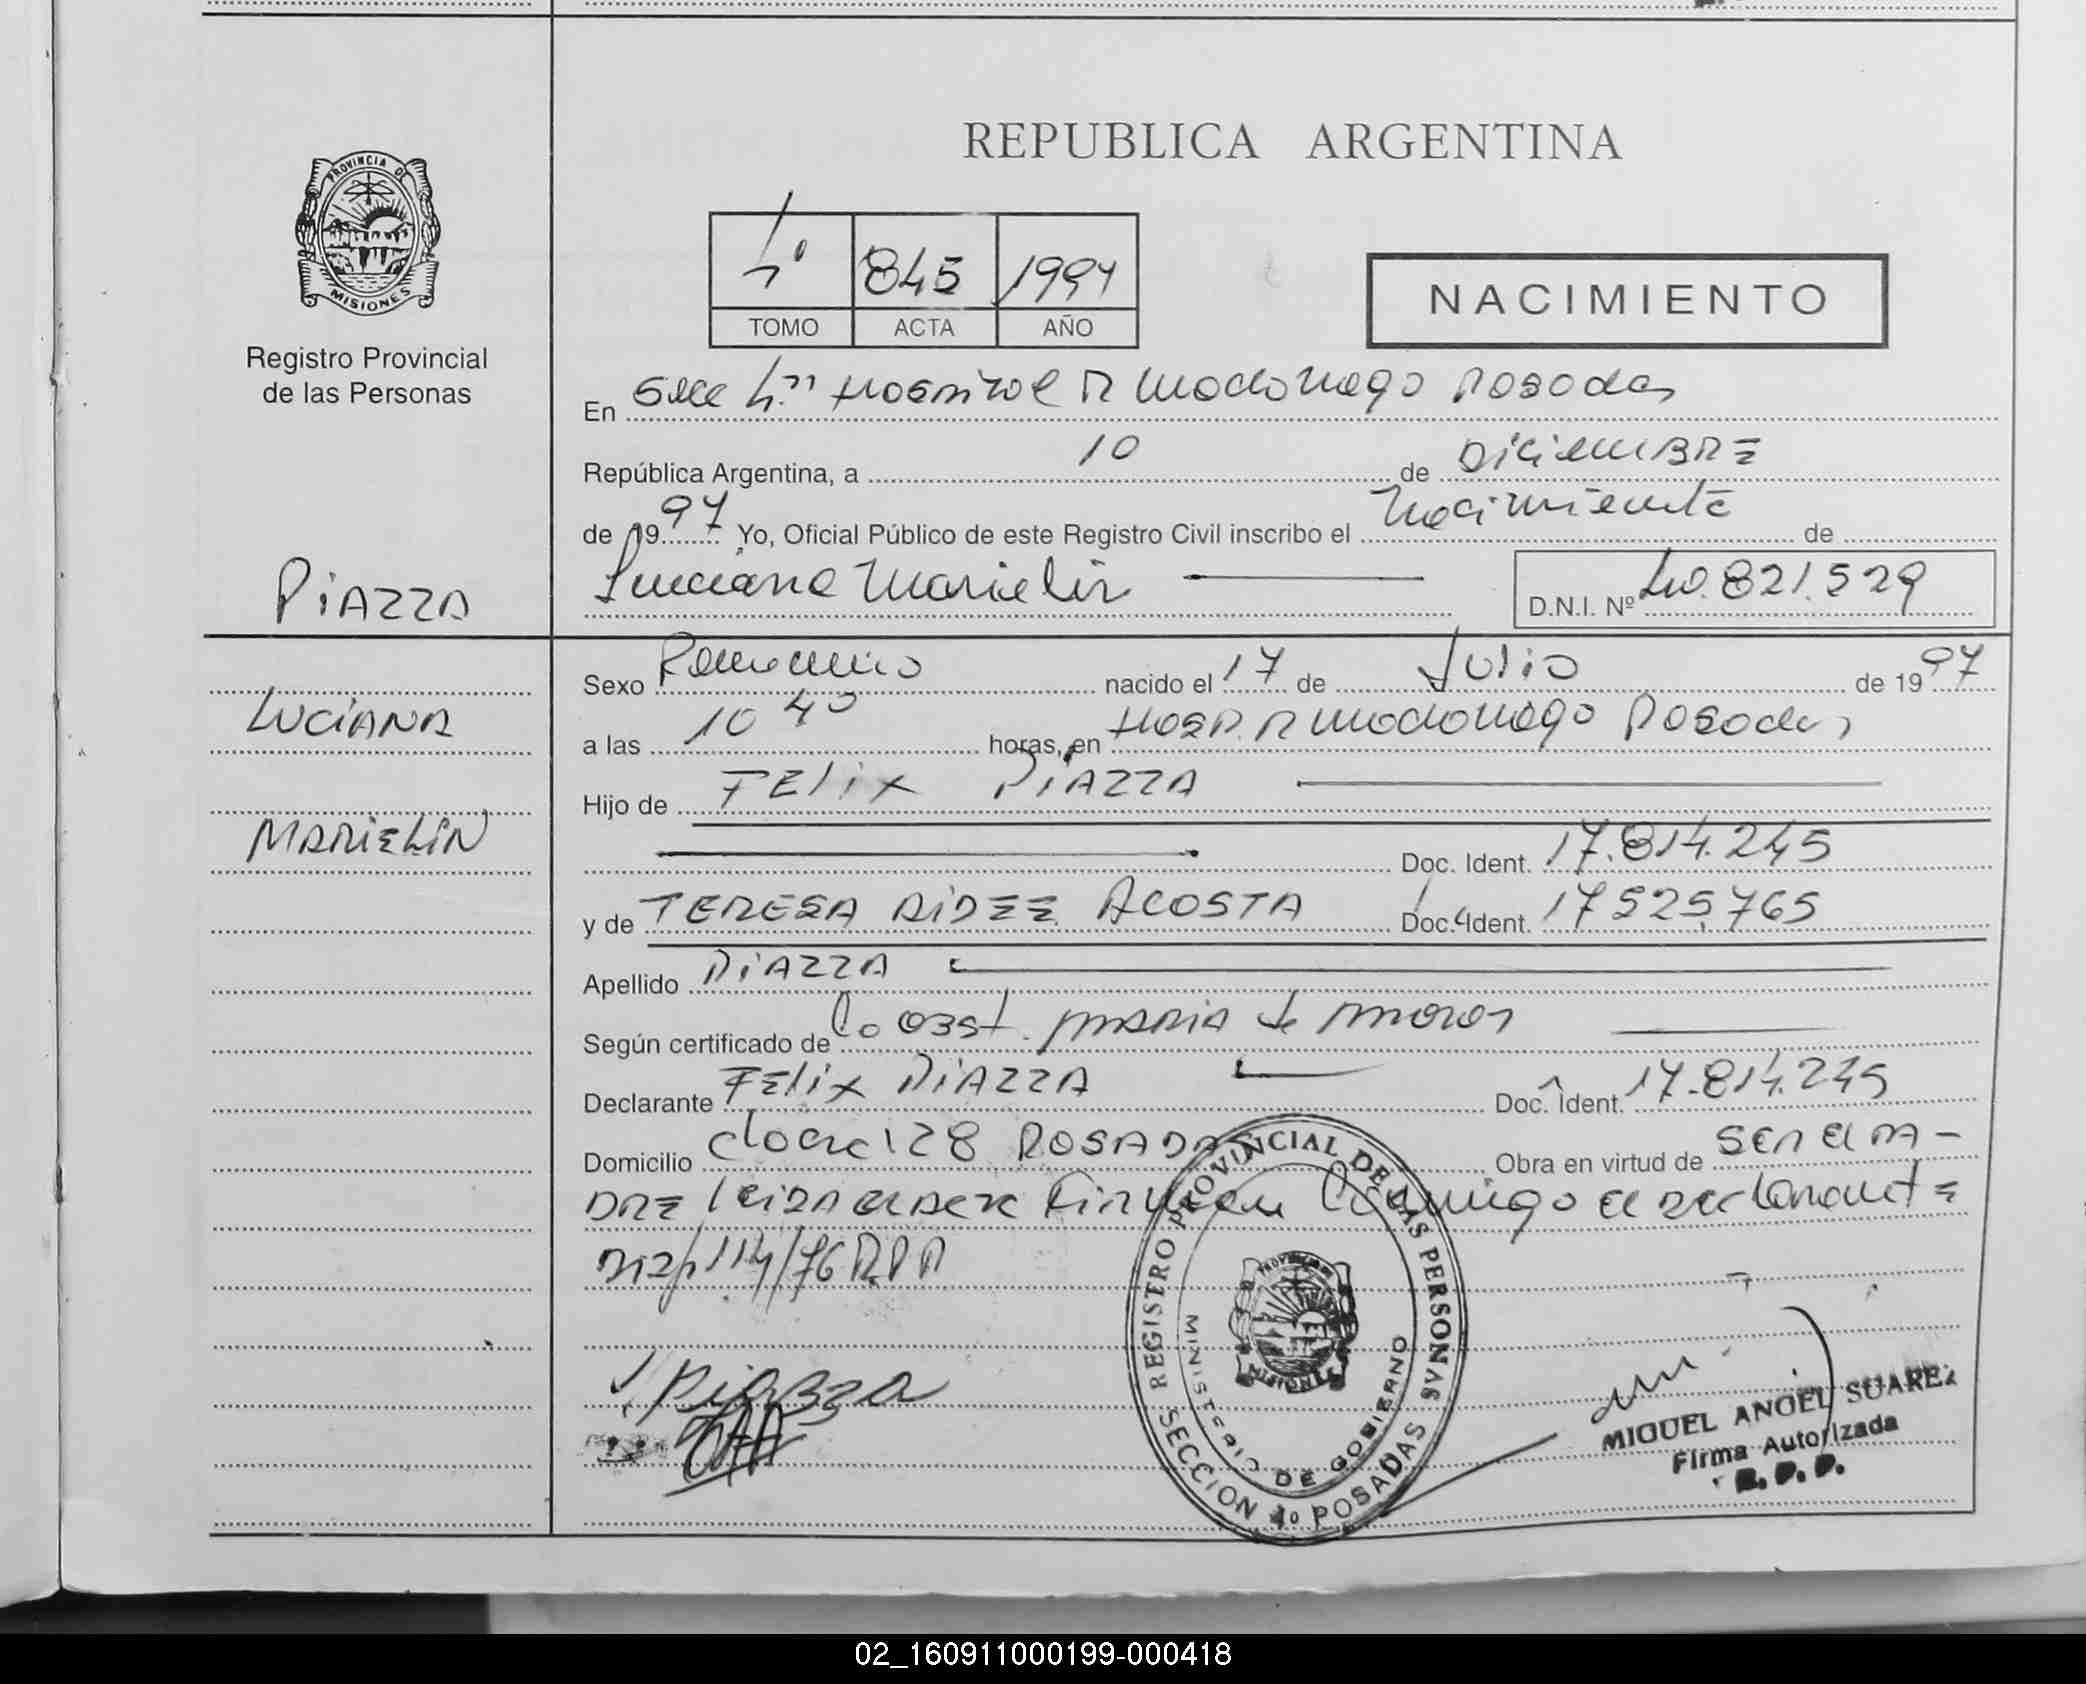 REPUBLICA ARGENTINA
PROVINCIA DE
MISIONES
Registro Provincial
de las Personas
845 1997
TOMO ACTA AÑO
NACIMIENTO
En Secc Hospital R Madariaga Posadas
República Argentina, a 10 de DiCiEMBRE
de 1997 Yo, Oficial Público de este Registro Civil inscribo el Nacimiento de
PiAZZA
Luciana Marielin
D.N.I. Nº 40.821.529
LUCiANA
MARIELiN
Sexo Femenino nacido el 17 de Julio de 1997
a las 10 40 horas, en HOSP. R Madariaga Posadas
Hijo de FELix PiAZZA
Doc. Ident. 17.814.245
y de TERESA AiDEE ACOSTA Doc. Ident. 17525765
Apellido PiAZZA
Según certificado de la OBST. MARiA de
Declarante FELix PiAZZA Doc. Ident. 17.814.245
Domicilio 128 POSADAS Obra en virtud de SER EL PA-
DRE Leida el Acta Firman Conmigo el declarante
114/76 RPP
Piazza
REGISTRO PROVINCIAL DE LAS PERSONAS
MINISTERIO DE GOBIERNO
SECCION 1º POSADAS
MIGUEL ANGEL SUAREZ
Firma Autorizada
R. P. P.
02_160911000199-000418